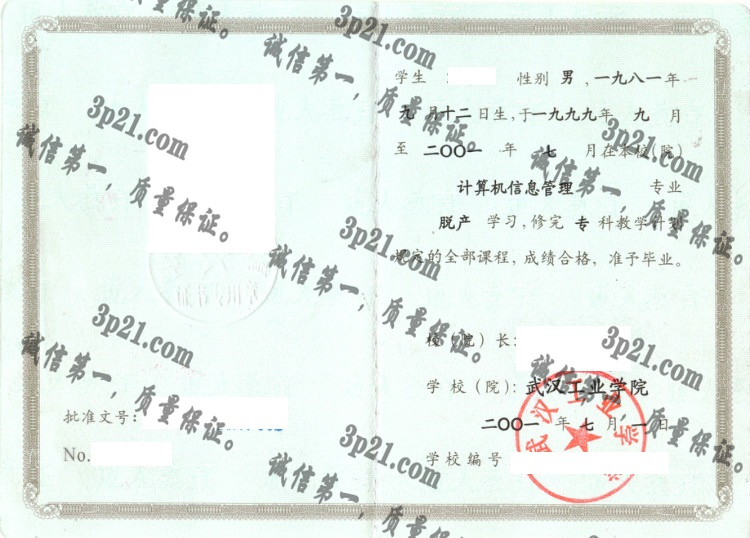 3p21.com
诚信第一，质量保证。
学生 性别 男，一九八一年
九月十二日生，于一九九九年 九 月
至 二〇〇一 年 七 月在本校（院）
计算机信息管理 专业
脱产 学习，修完 专 科教学计划
规定的全部课程，成绩合格，准予毕业。
校（院）长：
学校（院）：武汉工业学院
二〇〇一 年 七 月 一 日
学校编号
批准文号：
No.
武汉工业学
3p21.com
诚信第一，质量保证。
3p21.com
诚信第一，质量保证。
3p21.com
诚信第一，质量保证。
3p21.com
诚信第一，质量保证。
3p21.com
诚信第一，质量保证。
3p21.com
诚信第一，质量
质量保证。